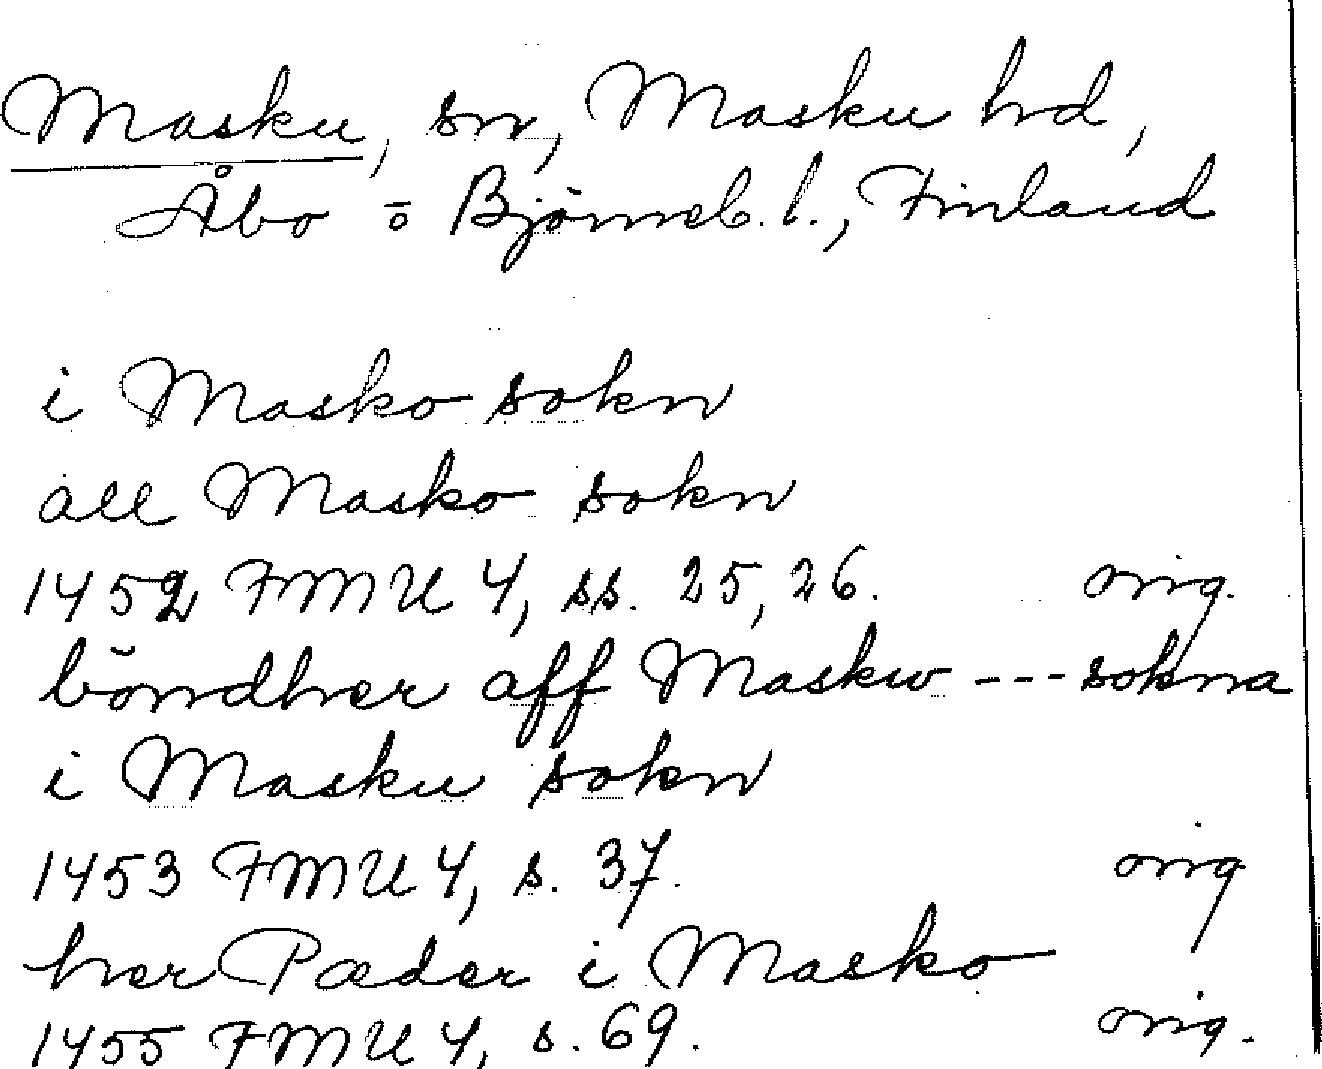 Masku, sn, Masku hd,
Åbo o Björneb. l., Finland
i Masko sokn
all Masko sokn
1452 FMU 4, ss. 25, 26. orig.
böndher aff Maskw --- sokna
i Masku sokn
1453 FMU 4, s. 37. orig
her Pæder i Masko
1455 FMU 4, s. 69. orig.